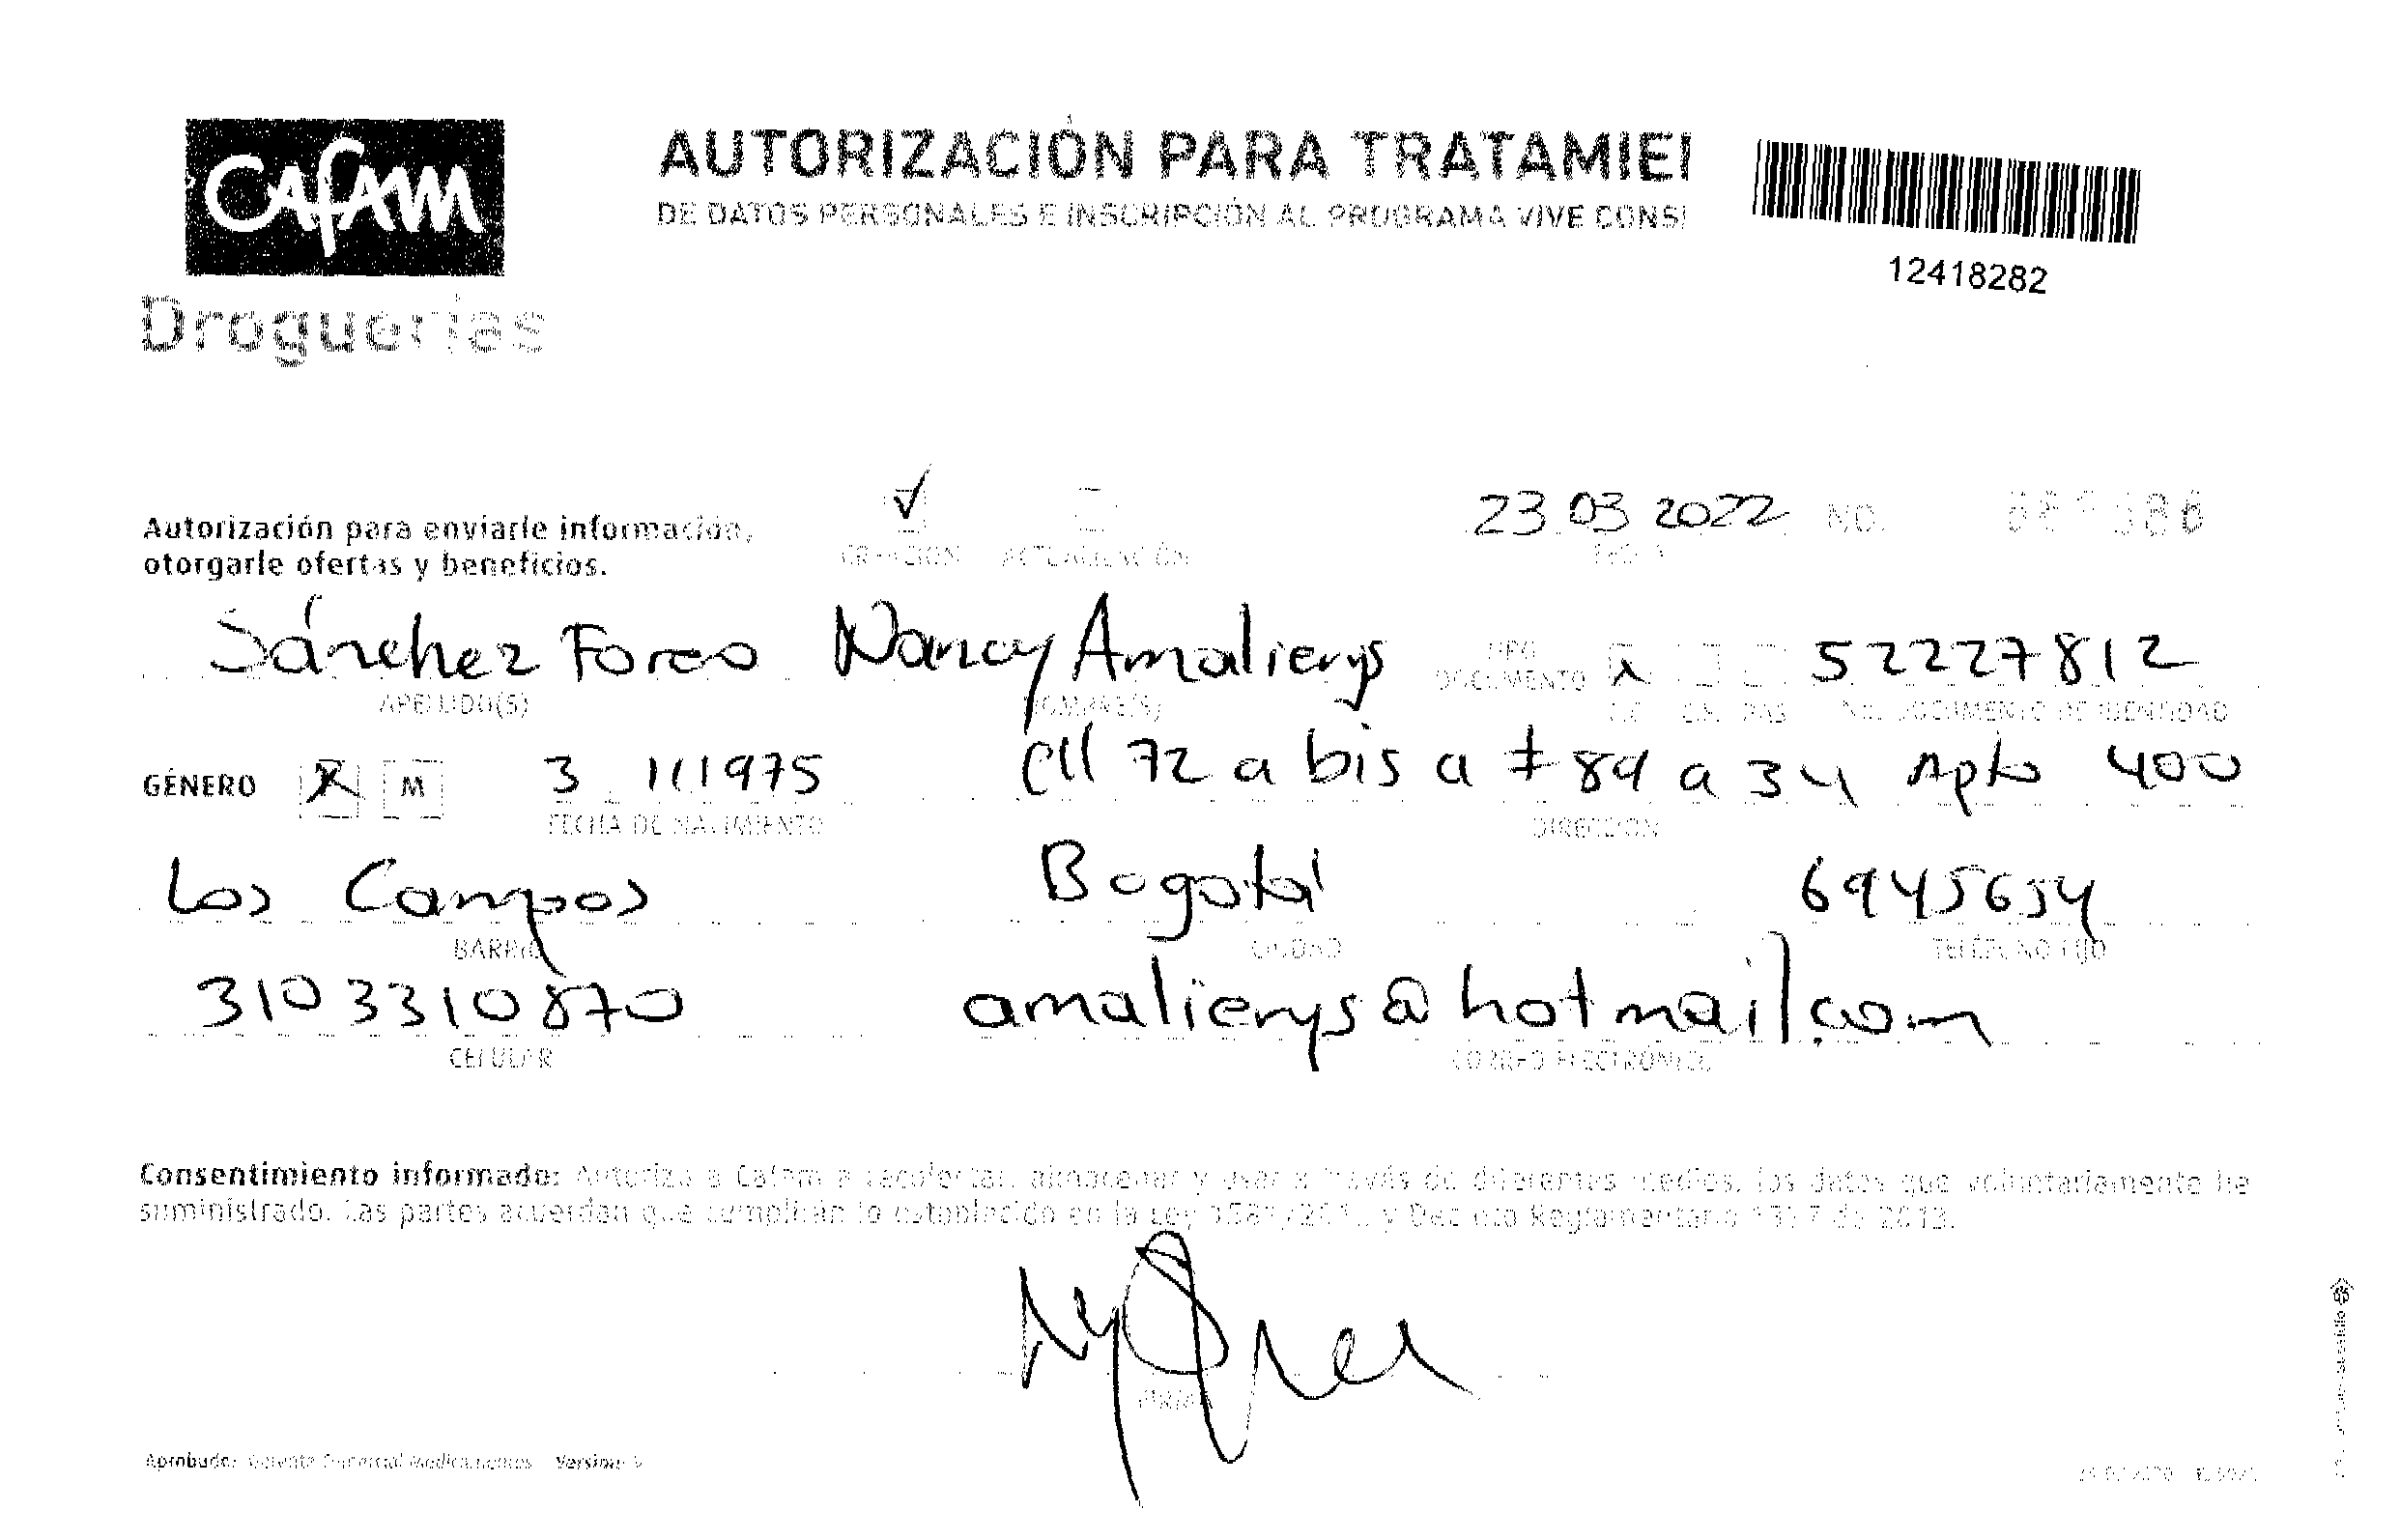 Cafam
Droguerías
AUTORIZACIÓN PARA TRATAMIEI
DE DATOS PERSONALES E INSCRIPCIÓN AL PROGRAMA VIVE CONSI
12418282
Autorización para enviarle información,
otorgarle ofertas y beneficios.
CREACIÓN ACTUALIZACIÓN
23 03 2022 NO.
FECHA
Sánchez Forero Nancy Amalierys TIPO DOCUMENTO X 52227812
APELLIDO(S) NOMBRE(S) C.C C.E. PAS No. DOCUMENTO DE IDENTIDAD
GÉNERO X M 3 11 1975 Cll 72 a bis a # 89 a 34 Apto 400
FECHA DE NACIMIENTO DIRECCIÓN
Los Campos Bogotá 6945654
BARRIO CIUDAD TELÉFONO FIJO
3103310870 amalierys@hotmail.com
CELULAR CORREO ELECTRÓNICO
Consentimiento informado: Autorizo a Cafam a recolectar, almacenar y usar a través de diferentes medios, los datos que voluntariamente he
suministrado. Las partes acuerdan que cumplirán lo establecido en la Ley 1581/2012 y Decreto Reglamentario 1377 de 2013.
FIRMA
Aprobado: Gerente Comercial Medicamentos Versión: